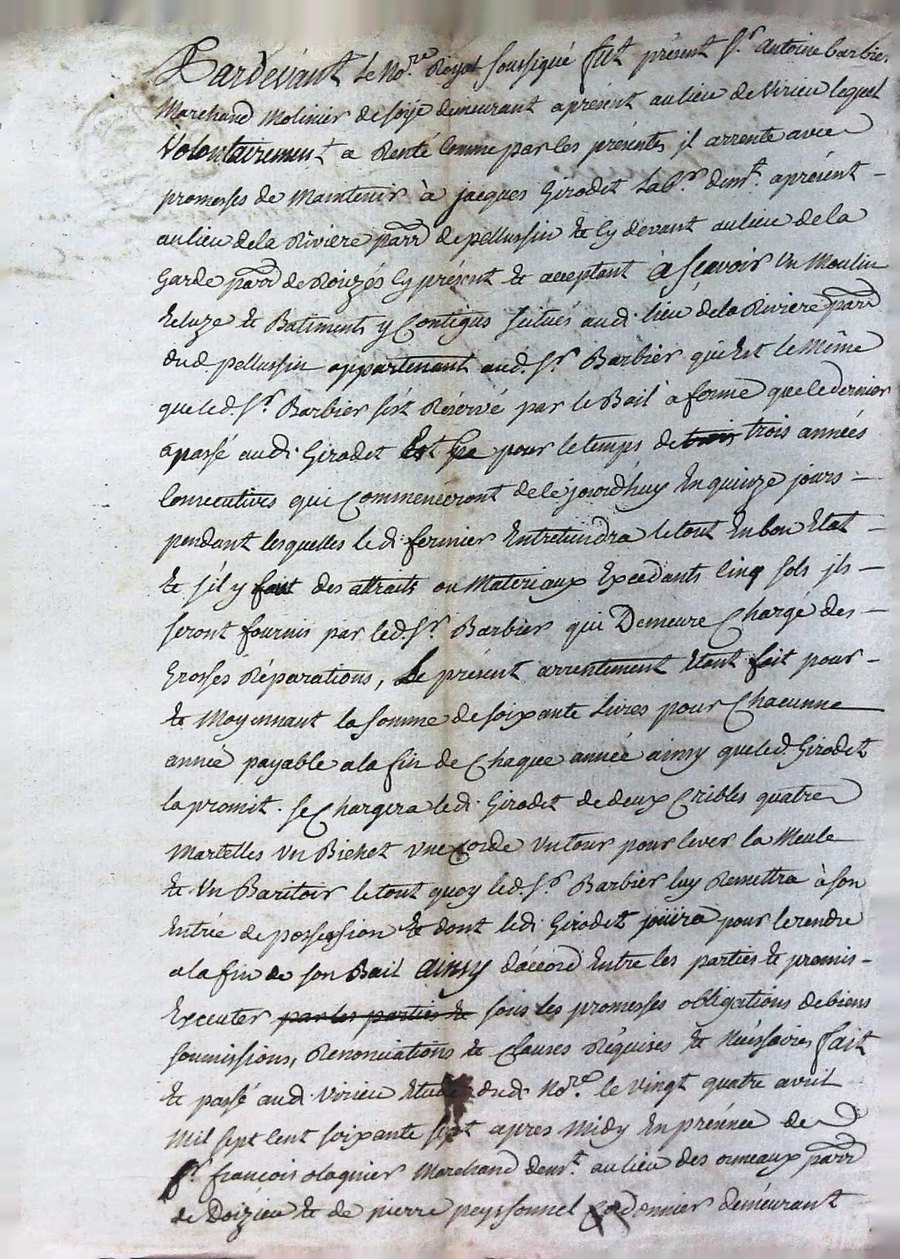 Pardevant le No.re Royal soussigné fut présent Sr. Antoine Barbier
Marchand Molinier de soÿe demeurant apresent au lieu de Virieu lequel
Volontairement a Renté Comme par les présentes il arrente avec
promesses de Maintenir à jacques Girodet Labr. demt. aprésent -
au lieu dela Riviere parr de pellussin & Cy devant au lieu de la
Garde parr de Roizés Cy présent & acceptant à Sçavoir Un Moulin
Ecluze & Batiments y Contigus situés aud. lieu dela Riviere parr
dud pellussin appartenant aud. Sr. Barbier qui Est le Même
que led. Sr. Barbier s'est Réservé par le Bail a ferme que le dernier
a passé aud. Girodet pour le temps de trois trois années
Consecutives qui Commenceront de ce jourdhuy En quinze jours -
pendant lesquelles led. fermier Entretiendra le tout En bon Etat -
& s'il y faut des attraits ou Materiaux Excedants Cinq sols jls -
seront fournis par led. Sr. Barbier qui Demeure Chargé des -
Grosses Réparations, Le présent arrentement Etant fait pour -
& Moyennant la somme de soixante Livres pour Chacunne
année payable a la fin de Chaque année ainsy que led. Girodet
la promit. se Chargera led. Girodet de deux Cribles quatre
Martelles Un Bichet une Corde Un tour pour lever la Meule
& Un Baritoir le tout quoy led. Sr. Barbier luy Remettra à son
Entrée de possession & dont led. Girodet joüira pour le rendre
a la fin de son Bail ainsy d'accord Entre les parties & promis -
Executer par les parties & sous les promesses obligations de biens
soumissions, Renonciations & Clauses Réquises & Nécéssaires fait
& passé aud. Virieu Etude dud. Nore. le vingt quatre avril
Mil sept cent soixante sept apres Midy En présence de
Sr. françois olagnier Marchand demt. au lieu des ormeaux parr
de Doizieu & de pierre peyssonnel Cordonnier deméurant